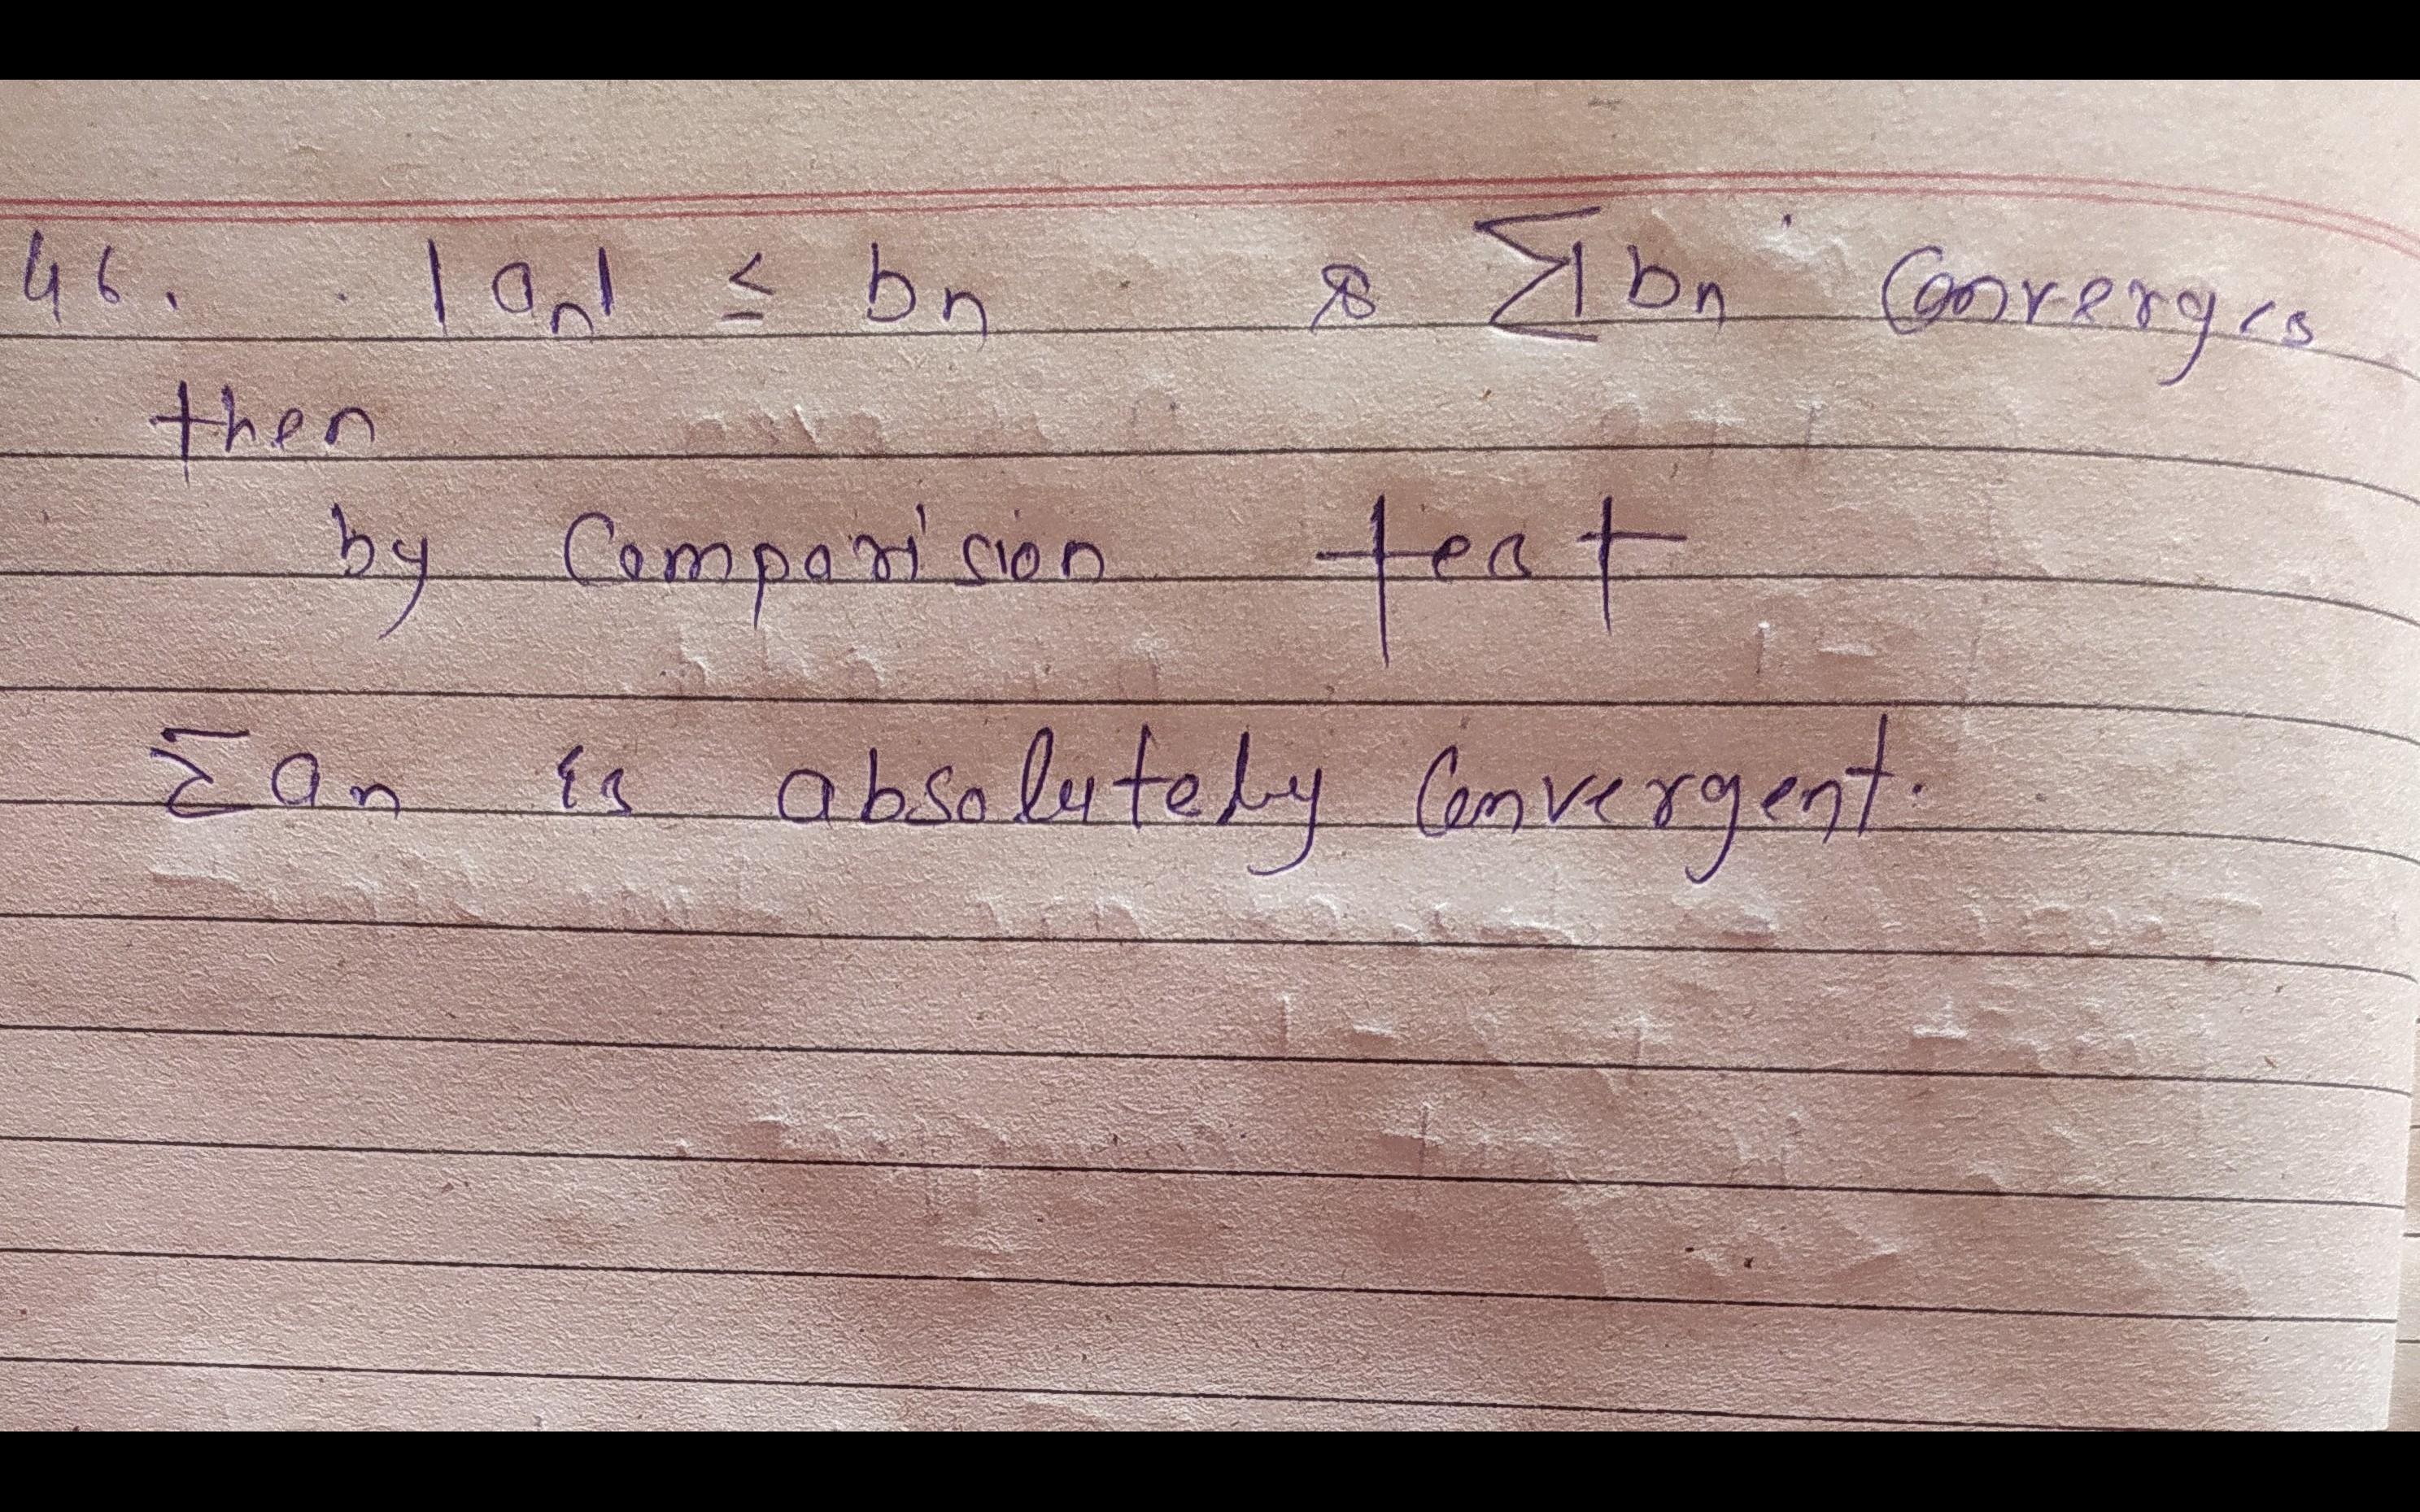 46. |an| ≤ bn & ∑ bn Converges
then
by Comparision test
∑ an is absolutely Convergent.